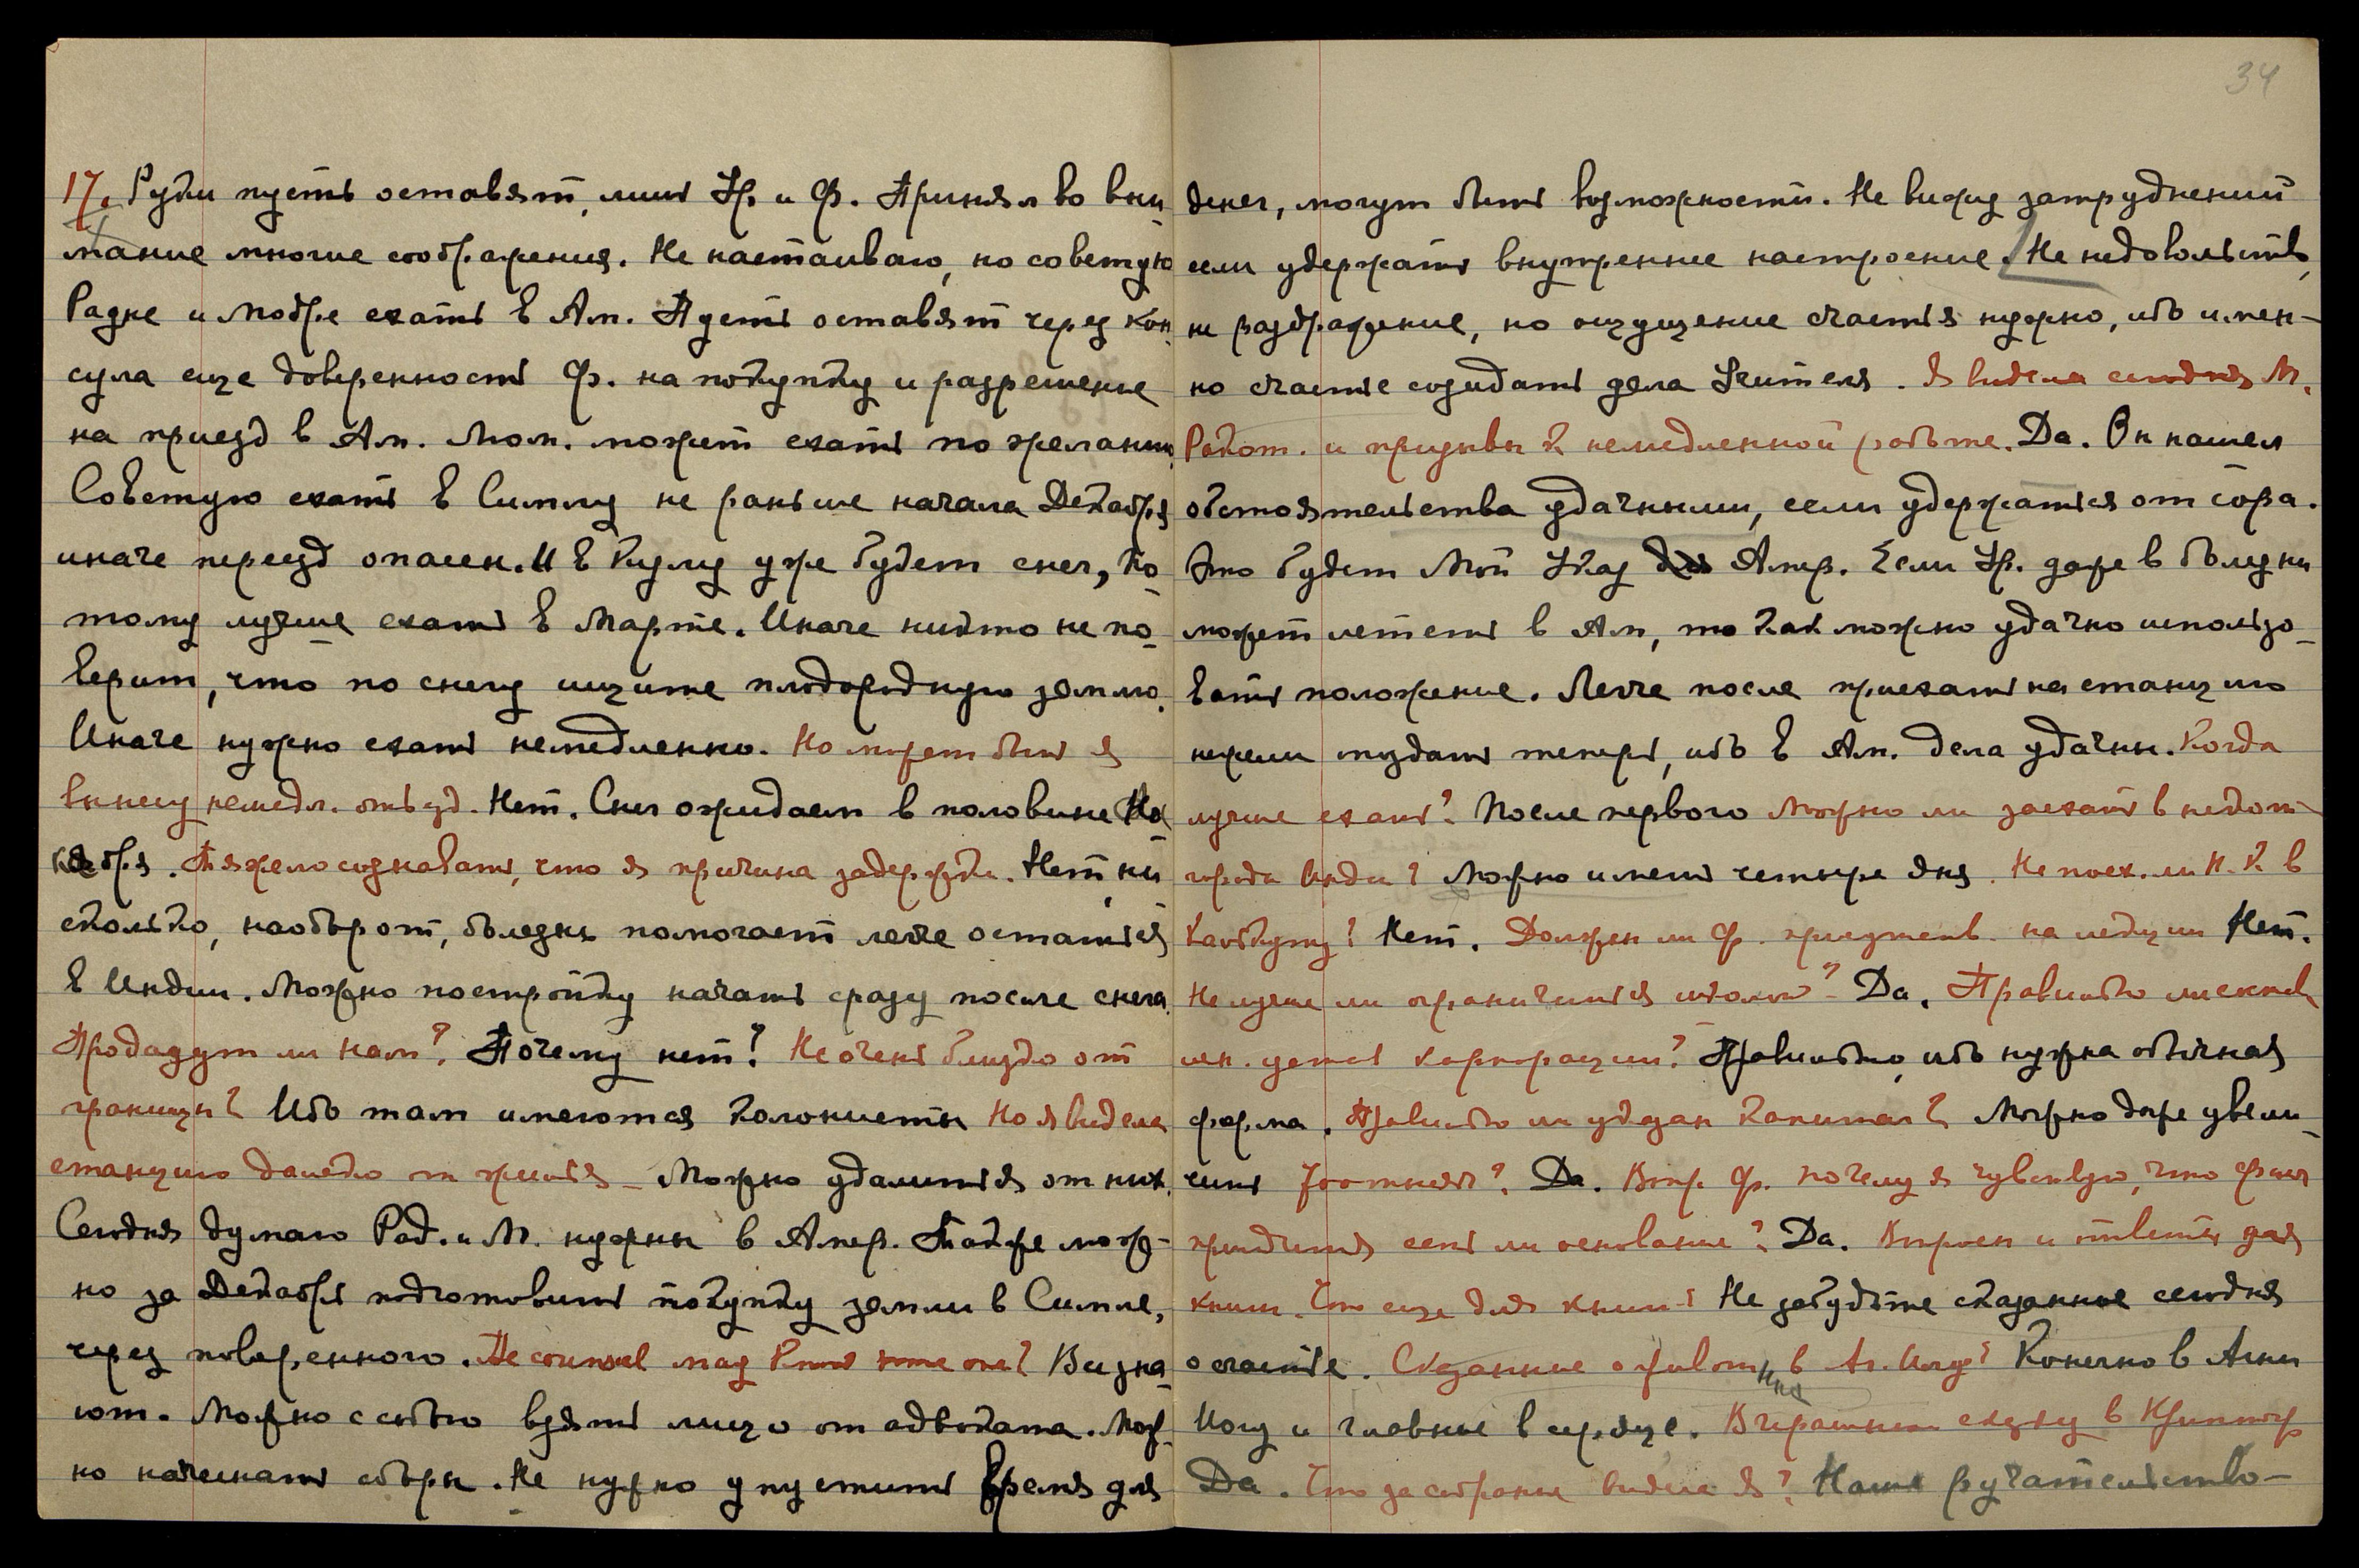 17. Рудки пусть оставят, лишь Ур. и Ф. Принял во вни-
мание многие соображения. Не настаиваю, но советую
Радне и Модре ехать в Ам. Пусть оставят через кон-
сула еще доверенность Ф. на покупку и разрешение
на приезд в Ам. Мом. может ехать по желанию.
Советую ехать в Симлу не раньше начала Декабря
иначе переезд опасен. И в Кулу уже будет снег, по-
тому лучше ехать в Марте. Иначе никто не по-
верит, что по снегу ищите плодородную землю.
Иначе нужно ехать немедленно. Но может быть я
вынесу немедл. отъезд. Нет. Снег ожидаем в половине Но-
ября. Тяжело сознавать, что я причина задержки. Нет, ни-
сколько, наоборот, болезнь помогает легче остаться
в Индии. Можно постройку начать сразу после снега.
Продадут ли нам? Почему нет? Не очень близко от
границы? Ибо там имеются колонисты Но я видела
станцию далеко от жилья – Можно удалиться от них.
Сегодня думаю Рад. и М. нужны в Амер. Также мож-
но за Декабрь подготовить покупку земли в Симле,
через поверенного. Не counsel may some one? Все зна-
ют. Можно с собою взять лицо от адвоката. Мож-
но начинать сборы. Не нужно упустить время для
34
денег, могут быть возможности. Не вижу затруднений
если удержать внутреннее настроение. Не недовольство,
не раздражение, но ощущение счастья нужно, ибо имен-
но счастье созидать дела Учителя. Я видела сегодня М.
Ракот. и призывы к немедленной работе. Да. Он нашел
обстоятельства удачными, если удержаться от сора.
Это будет Мой Указ для Амер. Если Ур. даже в болезни
может лететь в Ам, то как можно удачно использо-
вать положение. Легче после приехать на станцию
нежели опоздать теперь, ибо в Ам. дела удачны. Когда
лучше ехать? После первого Можно ли заехать в некот.
города Индии? Можно иметь четыре дня. Не поех. ли Н. К. в
Калькутту? Нет. Должен ли Ф. присутств. на лекции Нет.
Не лучше ли ограничиться школой? – Да. Правильно ли
ли. устав корпорации? Правильно, ибо нужна обычная
форма. Правильно ли указан капитал? Можно даже увели-
чить Да. Вопр. Ф. почему я чувствую, что
придится есть ли основание? Да. Вопросы и ответы для
книги. Что еще для книги? Не забудьте сказанное сегодня
о счастье. Сказанные о животных в Аг. Йогу? Конечно в Агни
Йогу и главное в сердце. Вчерашнюю сказку в Криптогр
Да. Что за собрание видела я? Наше ручательство –